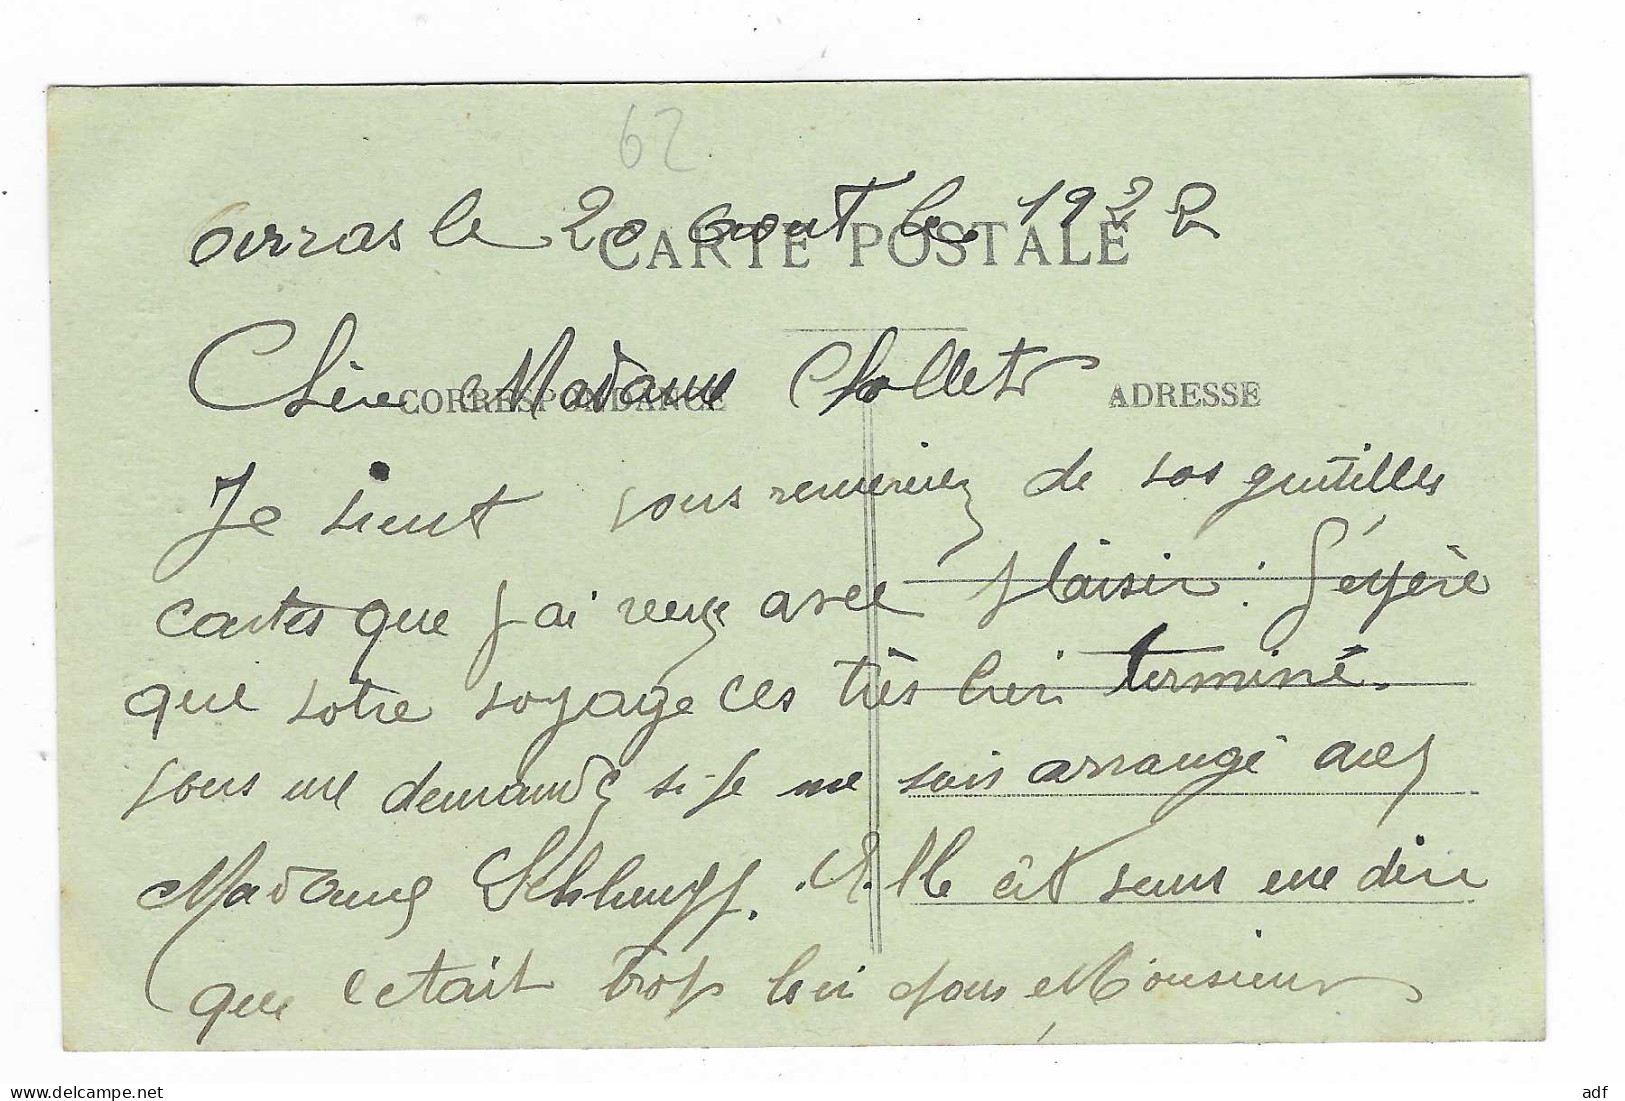 62
Arras le 20 aout 1922
CARTE POSTALE
Chère Madame Chollet
CORRESPONDANCE
ADRESSE
Je vient vous remerciez de vos gentilles
cartes que j'ai reçu avec plaisir. J'espère
que votre voyage ces très bien terminé.
vous me demandé si je me sois arrangé avec
Madame . Elle ât venu me dire
que cetait trop loin pour Monsieur
delcampe.net
adf